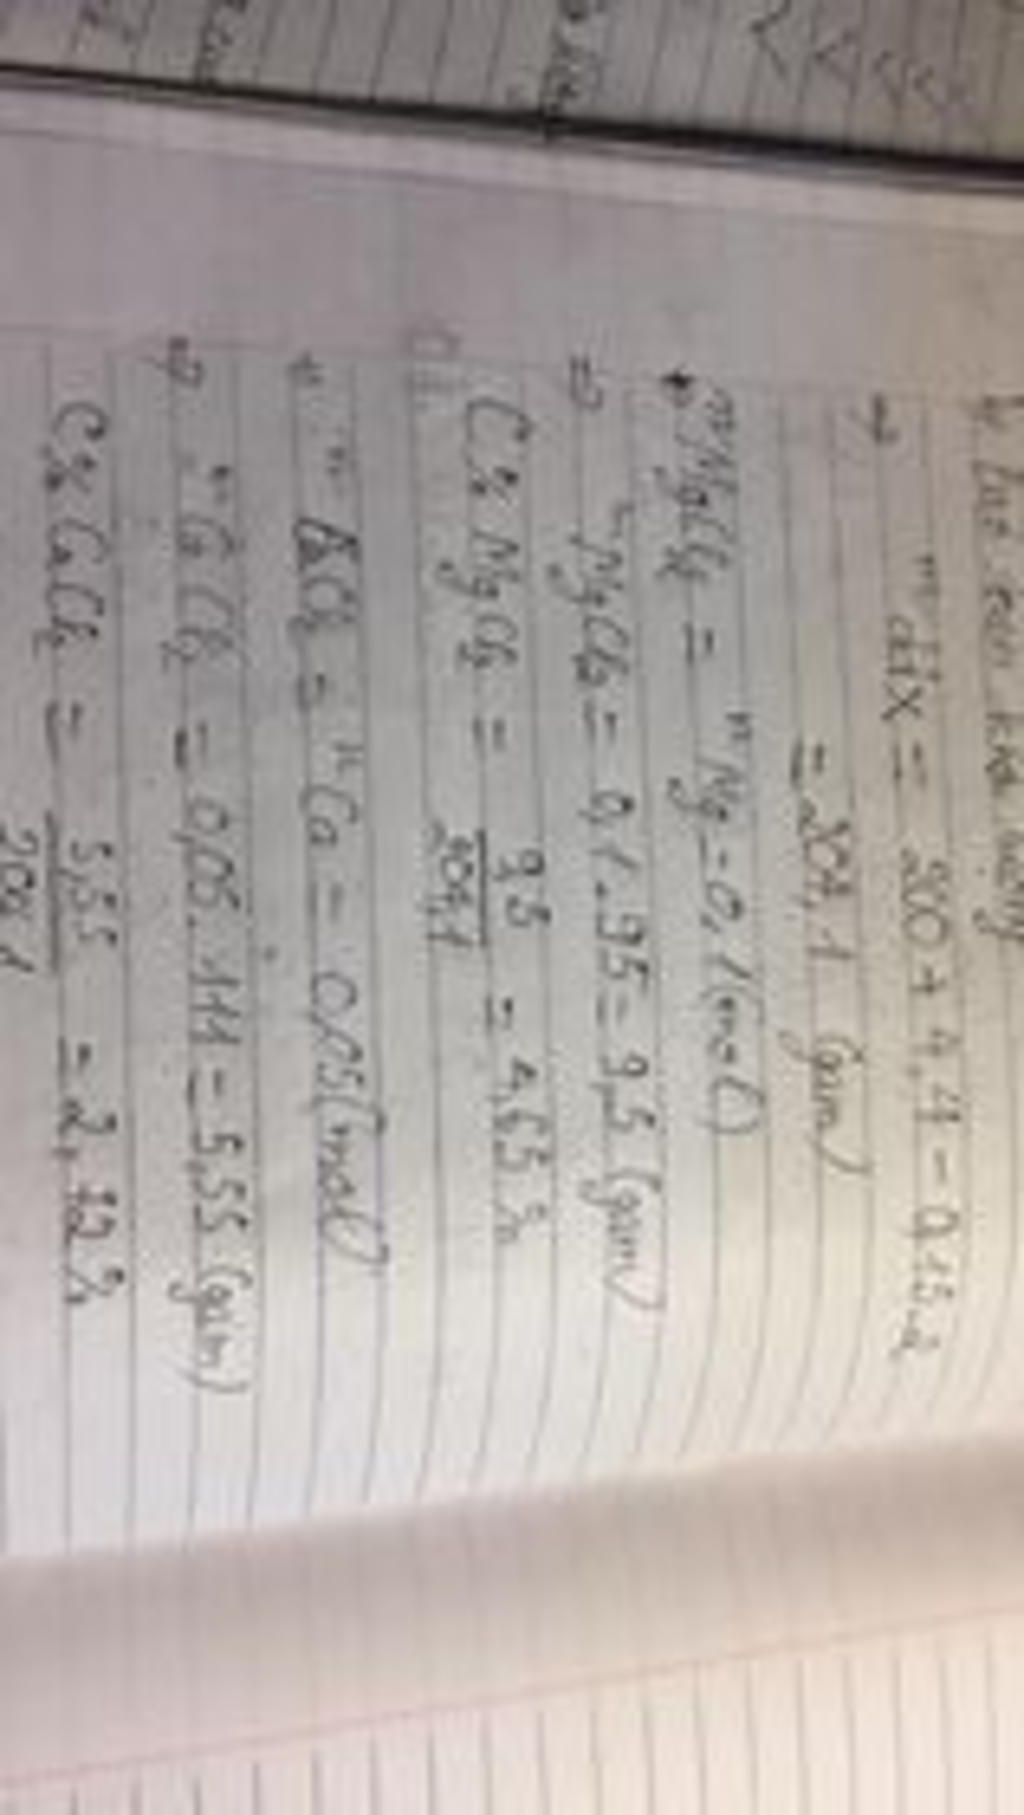 m ddX = 200 + 4,4 - 0,15.2
= 204,1 (gam)
n MgCl2 = n Mg = 0,1 (mol)
=> m MgCl2 = 0,1.95 = 9,5 (gam)
C% MgCl2 = 9,5 / 204,1 = 4,65%
n CaCl2 = n Ca = 0,05 (mol)
=> m CaCl2 = 0,05.111 = 5,55 (gam)
C% CaCl2 = 5,55 / 204,1 = 2,72%